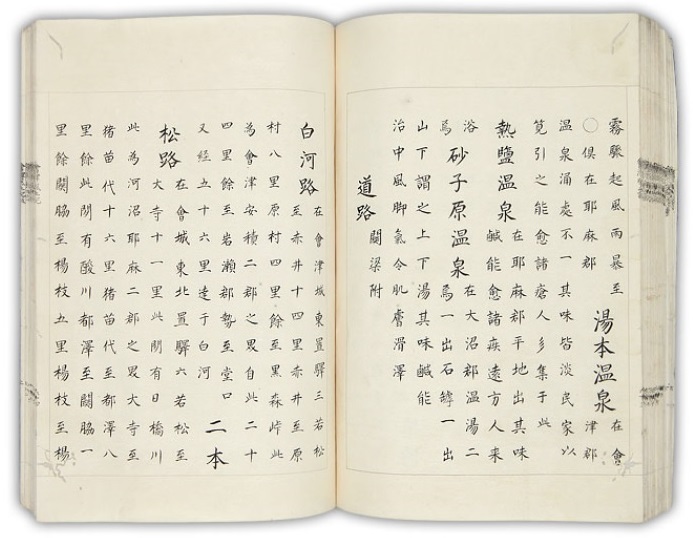 霧起風雨暴至
〇俱在耶麻郡
湯本温泉
在會
津郡
温泉涌處不一其味皆淡民家以
筧引之能愈諸瘡人多集于此
熱鹽温泉
在耶麻郡平地出其味
鹹能愈諸疾遠方人来
浴
焉
砂子原温泉
在大沼郡温湯二
焉一出石罅一出
山下謂之上下湯其味鹹能
治中風脚氣令肌膚滑澤
道路
關梁附
白河路
在會津城東置驛三若松
至赤井十四里赤井至原
村八里原村四里餘至黒森峠此
為會津安積二郡之界自此二十
四里餘至岩瀬郡勢至堂口
又経五十六里達于白河
二本
松路
在會城東北置驛六若松至
大寺十一里此間有日橋川
此為河沼耶麻二郡之界大寺至
猪苗代十六里猪苗代至都澤八
里餘此間有酸川都澤至關脇一
里餘關脇至楊枝五里楊枝至楊